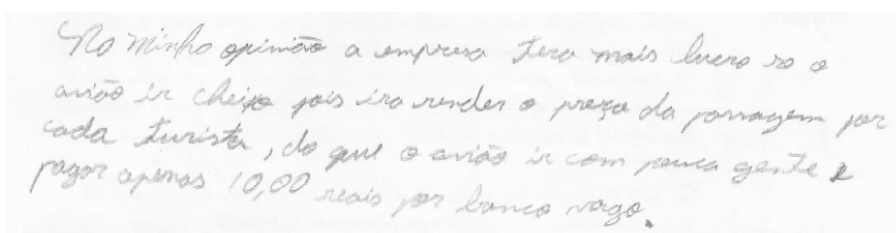 Na Minha opinião a empresa tera mais lucro se o
avião ir cheio pois ira render o preço da passagem por
cada turista, do que o avião ir com pouca gente e
pagar apenas 10,00 reais por banco vago.